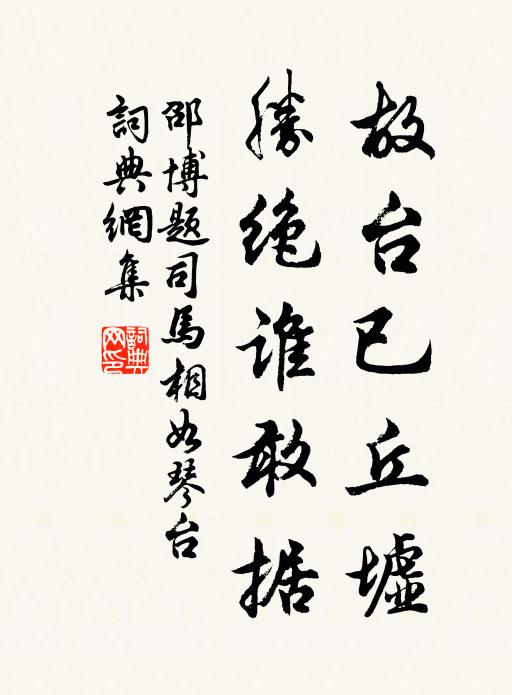 故台已丘墟
勝绝谁敢据
邵博题司馬相如琴台
詞典網集
詞典网印